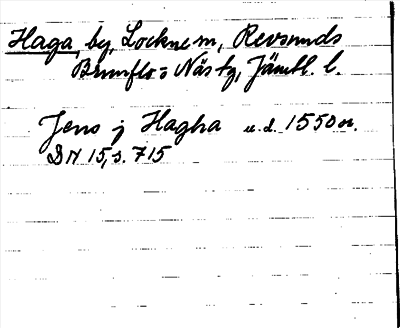 Haga, by, Lockne sn, Revsunds
Brunflo o Näs tg, Jämtl. l.
Jens j Hagha u.d. 1550 n.
DN 15, s. 715